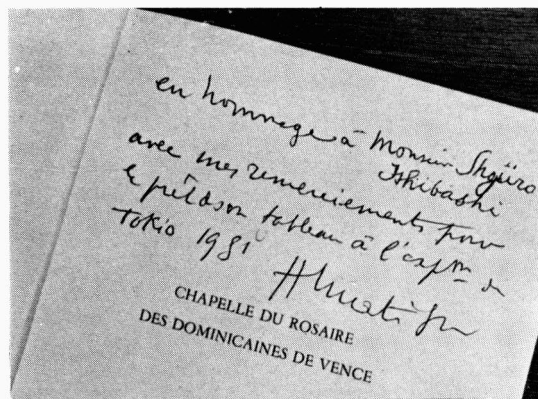 en hommage à Monsieur Shgüro
Ishibashi
avec mes remerciements pour
le prêt de son tableau à l'expon de
Tokio 1951
HMatisse
CHAPELLE DU ROSAIRE
DES DOMINICAINES DE VENCE